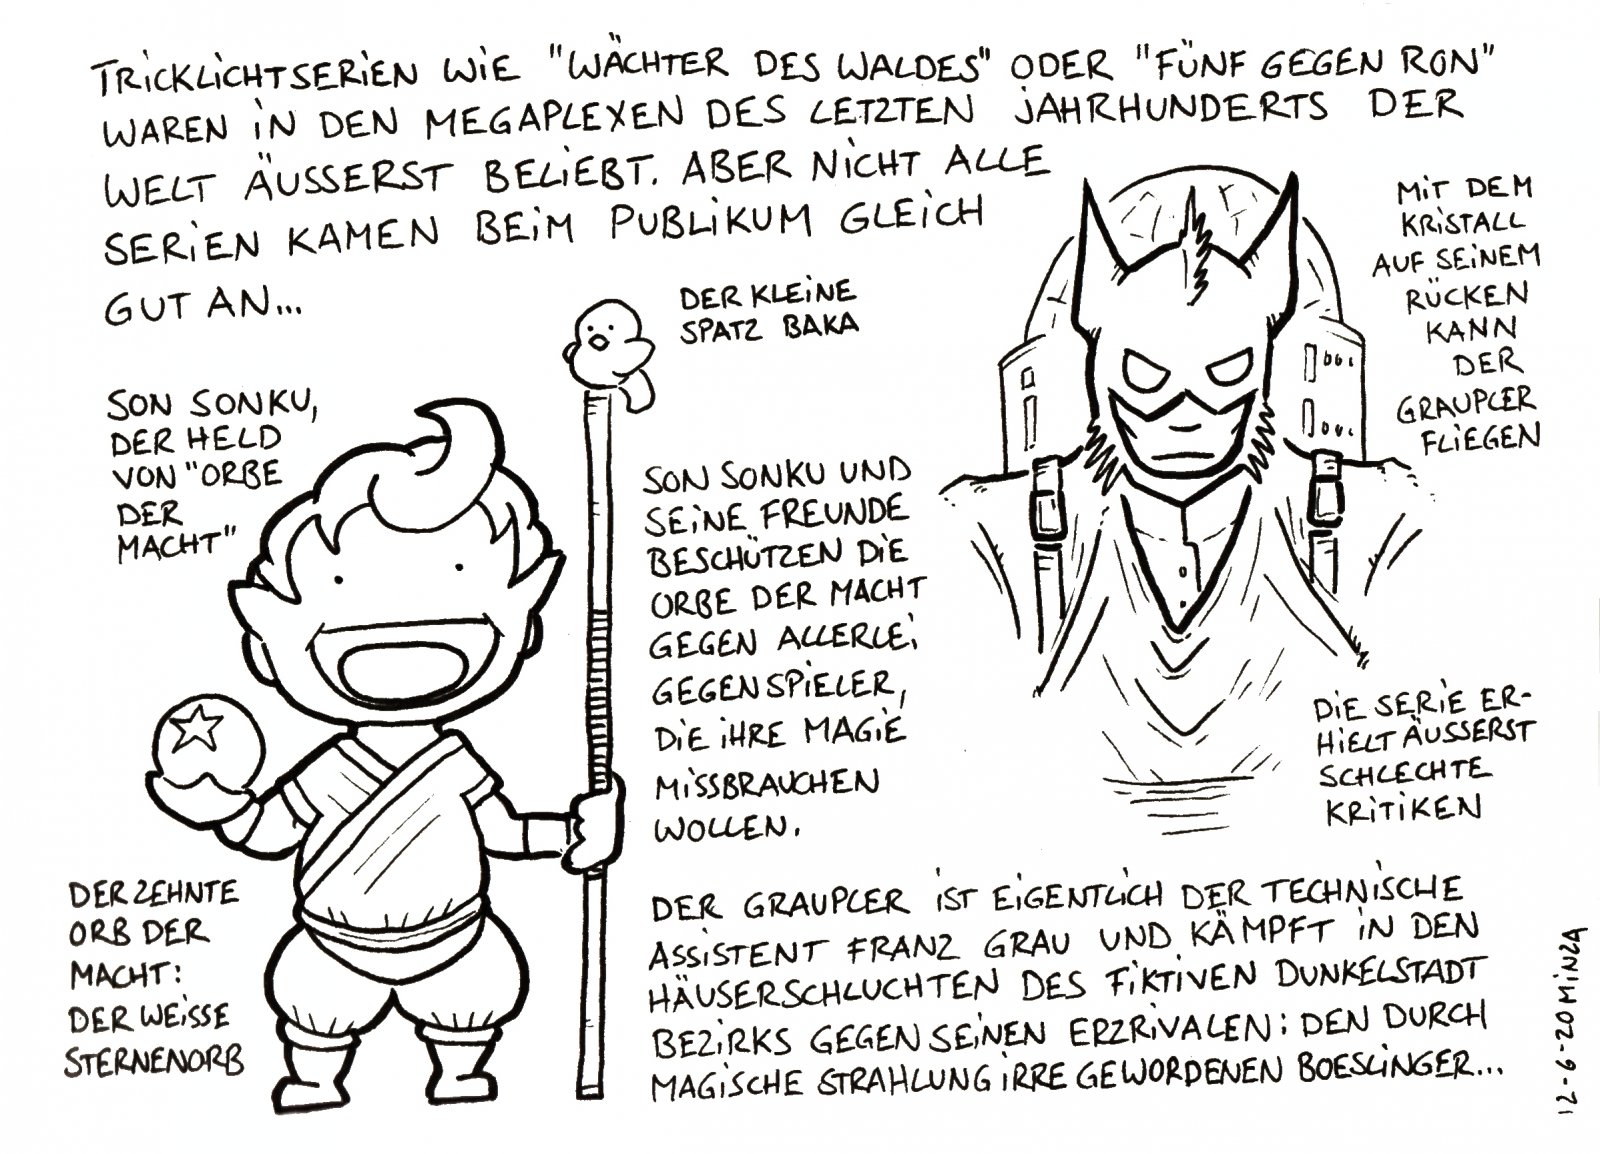 TRICKLICHTSERIEN WIE "WÄCHTER DES WALDES" ODER "FÜNF GEGEN RON"
WAREN IN DEN MEGAPLEXEN DES LETZTEN JAHRHUNDERTS DER
WELT ÄUSSERST BELIEBT. ABER NICHT ALLE
SERIEN KAMEN BEIM PUBLIKUM GLEICH
GUT AN...
DER KLEINE
SPATZ BAKA
SON SONKU,
DER HELD
VON "ORBE
DER
MACHT"
SON SONKU UND
SEINE FREUNDE
BESCHÜTZEN DIE
ORBE DER MACHT
GEGEN ALLERLEI
GEGENSPIELER,
DIE IHRE MAGIE
MISSBRAUCHEN
WOLLEN.
DER ZEHNTE
ORB DER
MACHT:
DER WEISSE
STERNENORB
MIT DEM
KRISTALL
AUF SEINEM
RÜCKEN
KANN
DER
GRAUPLER
FLIEGEN
DIE SERIE ER-
HIELT ÄUSSERST
SCHLECHTE
KRITIKEN
DER GRAUPLER IST EIGENTLICH DER TECHNISCHE
ASSISTENT FRANZ GRAU UND KÄMPFT IN DEN
HÄUSERSCHLUCHTEN DES FIKTIVEN DUNKELSTADT
BEZIRKS GEGEN SEINEN ERZRIVALEN: DEN DURCH
MAGISCHE STRAHLUNG IRRE GEWORDENEN BOESLINGER...
12-6-20 MINZA